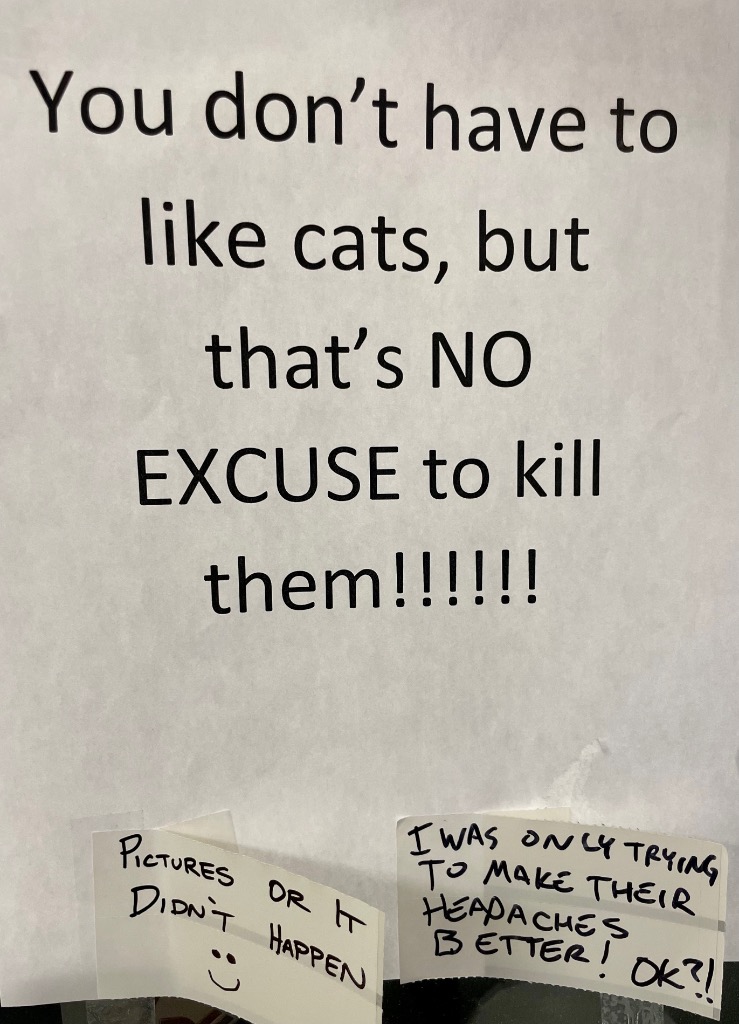 You don’t have to
like cats, but
that’s NO
EXCUSE to kill
them!!!!!!
PICTURES OR IT
DIDN'T HAPPEN
I WAS ONLY TRYING
TO MAKE THEIR
HEADACHES
BETTER! OK?!